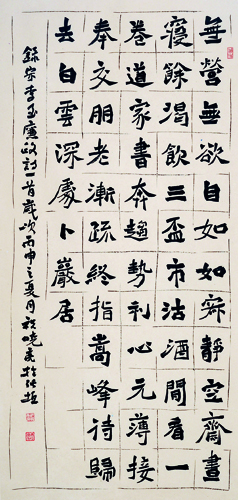 無營無欲自如如寂靜空齋晝
寢餘渴飲三盃市沽酒閒看一
卷道家書奔趨勢利心元薄接
奉交朋老漸疏終指嵩峰待歸
去白雲深處卜巖居
錄宋李廉政詩一首歲次丙申之夏月曉